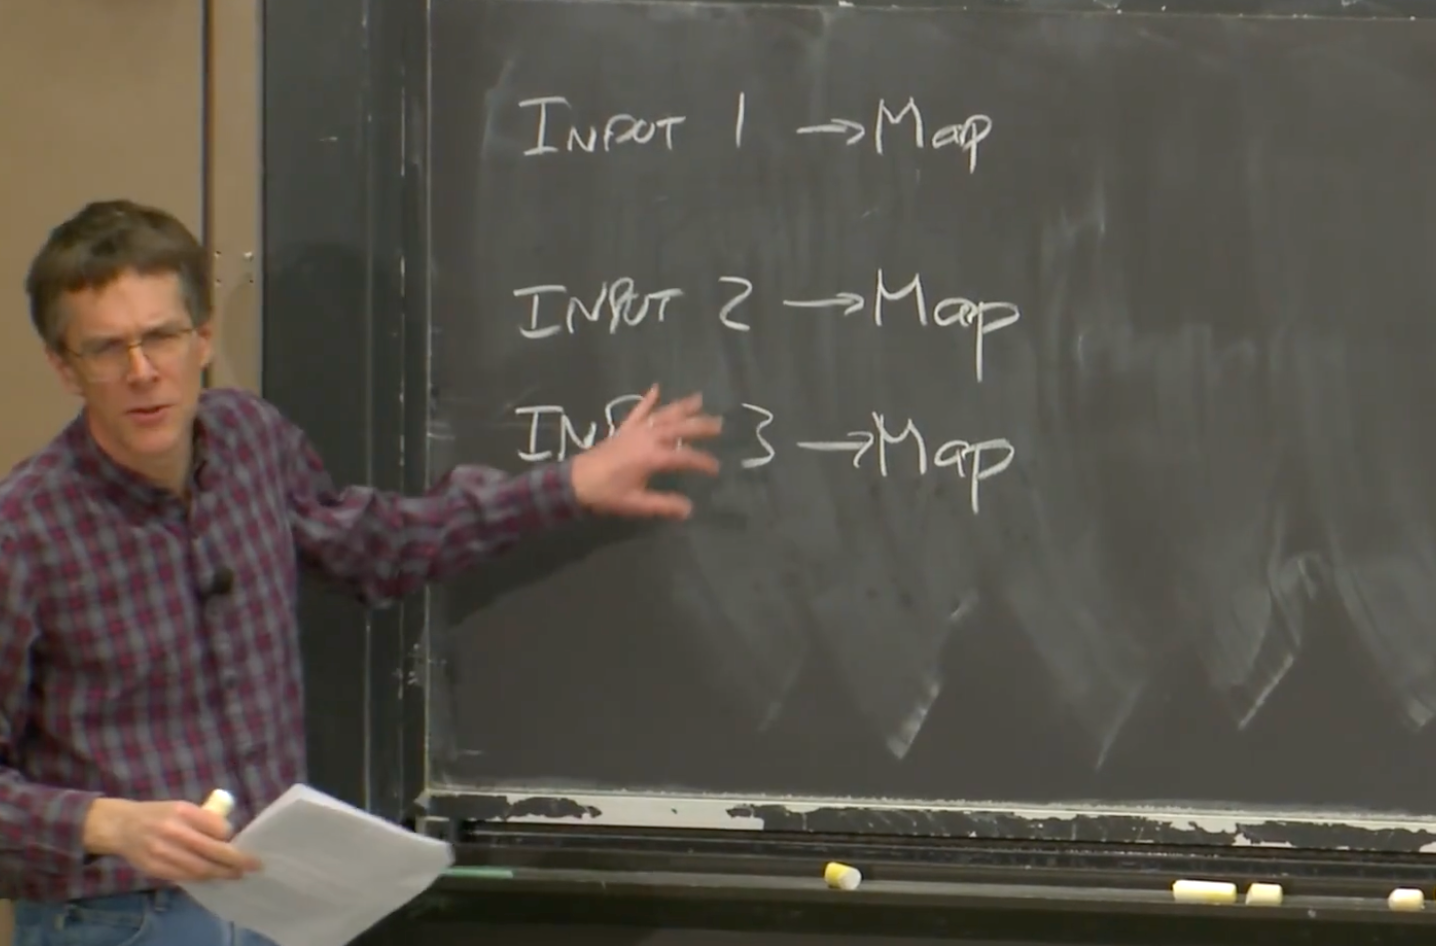 INPUT 1 → Map
INPUT 2 → Map
3 → Map